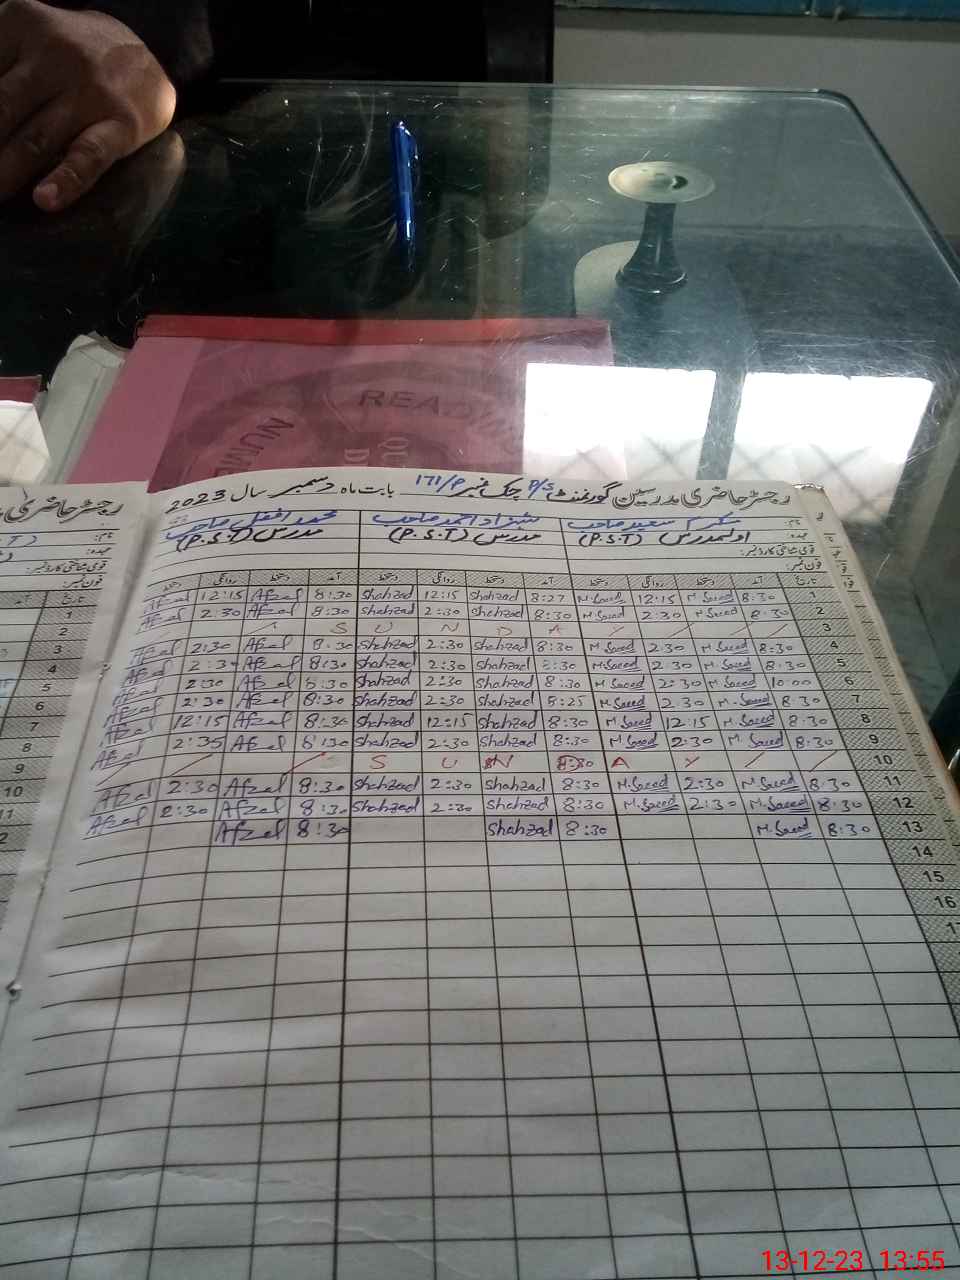 READING
NUME
رجسٹر حاضری مدرسین گورنمنٹ P/S چک نمبر 171/P بابت ماہ دسمبر سال 2023
رجسٹر حاضری
نام: محمد سعید صاحب شہزاد احمد صاحب محمد افضل صاحب
عہدہ: اول مدرس (P.S.T) مدرس (P.S.T) مدرس (P.S.T)
قومی شناختی کارڈ نمبر:
فون نمبر:
تاریخ آمد دستخط روانگی دستخط آمد دستخط روانگی دستخط آمد دستخط روانگی دستخط
1 8:30 M.Saeed 12:15 M.Saeed 8:27 Shahzad 12:15 Shahzad 8:30 Afzal 12:15 Afzal
2 8:30 M.Saeed 2:30 M.Saeed 8:30 Shahzad 2:30 Shahzad 8:30 Afzal 2:30 Afzal
3 S U N D A Y
4 8:30 M.Saeed 2:30 M.Saeed 8:30 Shahzad 2:30 Shahzad 8:30 Afzal 2:30 Afzal
5 8:30 M.Saeed 2:30 M.Saeed 8:30 Shahzad 2:30 Shahzad 8:30 Afzal 2:30 Afzal
6 10:00 M.Saeed 2:30 M.Saeed 8:30 Shahzad 2:30 Shahzad 8:30 Afzal 2:30 Afzal
7 8:30 M.Saeed 2:30 M.Saeed 8:25 Shahzad 2:30 Shahzad 8:30 Afzal 2:30 Afzal
8 8:30 M.Saeed 12:15 M.Saeed 8:30 Shahzad 12:15 Shahzad 8:30 Afzal 12:15 Afzal
9 8:30 M.Saeed 2:30 M.Saeed 8:30 Shahzad 2:30 Shahzad 8:30 Afzal 2:35 Afzal
10 S U N A Y
11 8:30 M.Saeed 2:30 M.Saeed 8:30 Shahzad 2:30 Shahzad 8:30 Afzal 2:30 Afzal
12 8:30 M.Saeed 2:30 M.Saeed 8:30 Shahzad 2:30 Shahzad 8:30 Afzal 2:30 Afzal
13 8:30 M.Saeed 8:30 Shahzad 8:30 Afzal
14
15
16
نام:
عہدہ:
قومی شناختی کارڈ نمبر:
فون نمبر:
تاریخ
1
2
3
4
5
6
7
8
9
10
11
13-12-23 13:55